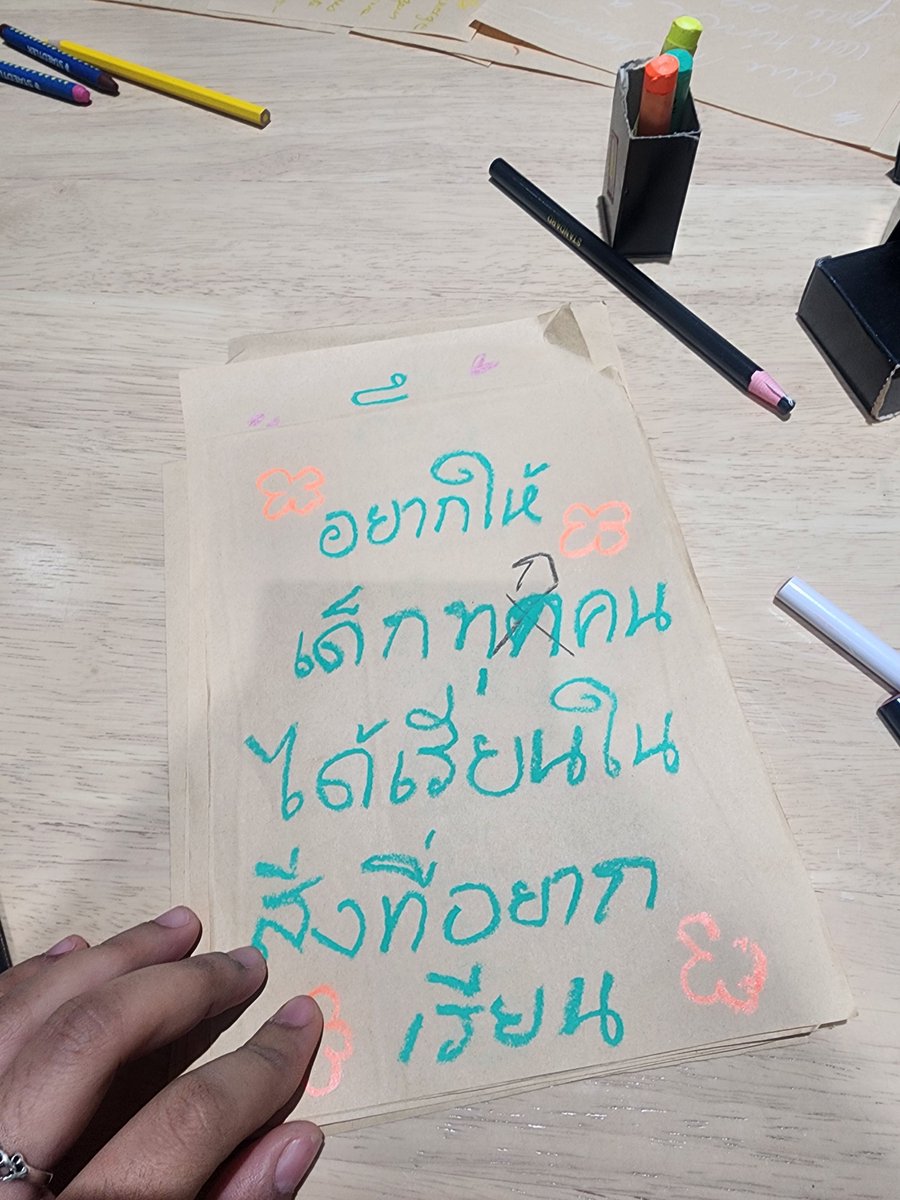 STAEDTLER
STAEDTLER
STANDARD
อยากให้
เด็กทุกคน
ได้เรียนใน
สิ่งที่อยาก
เรียน